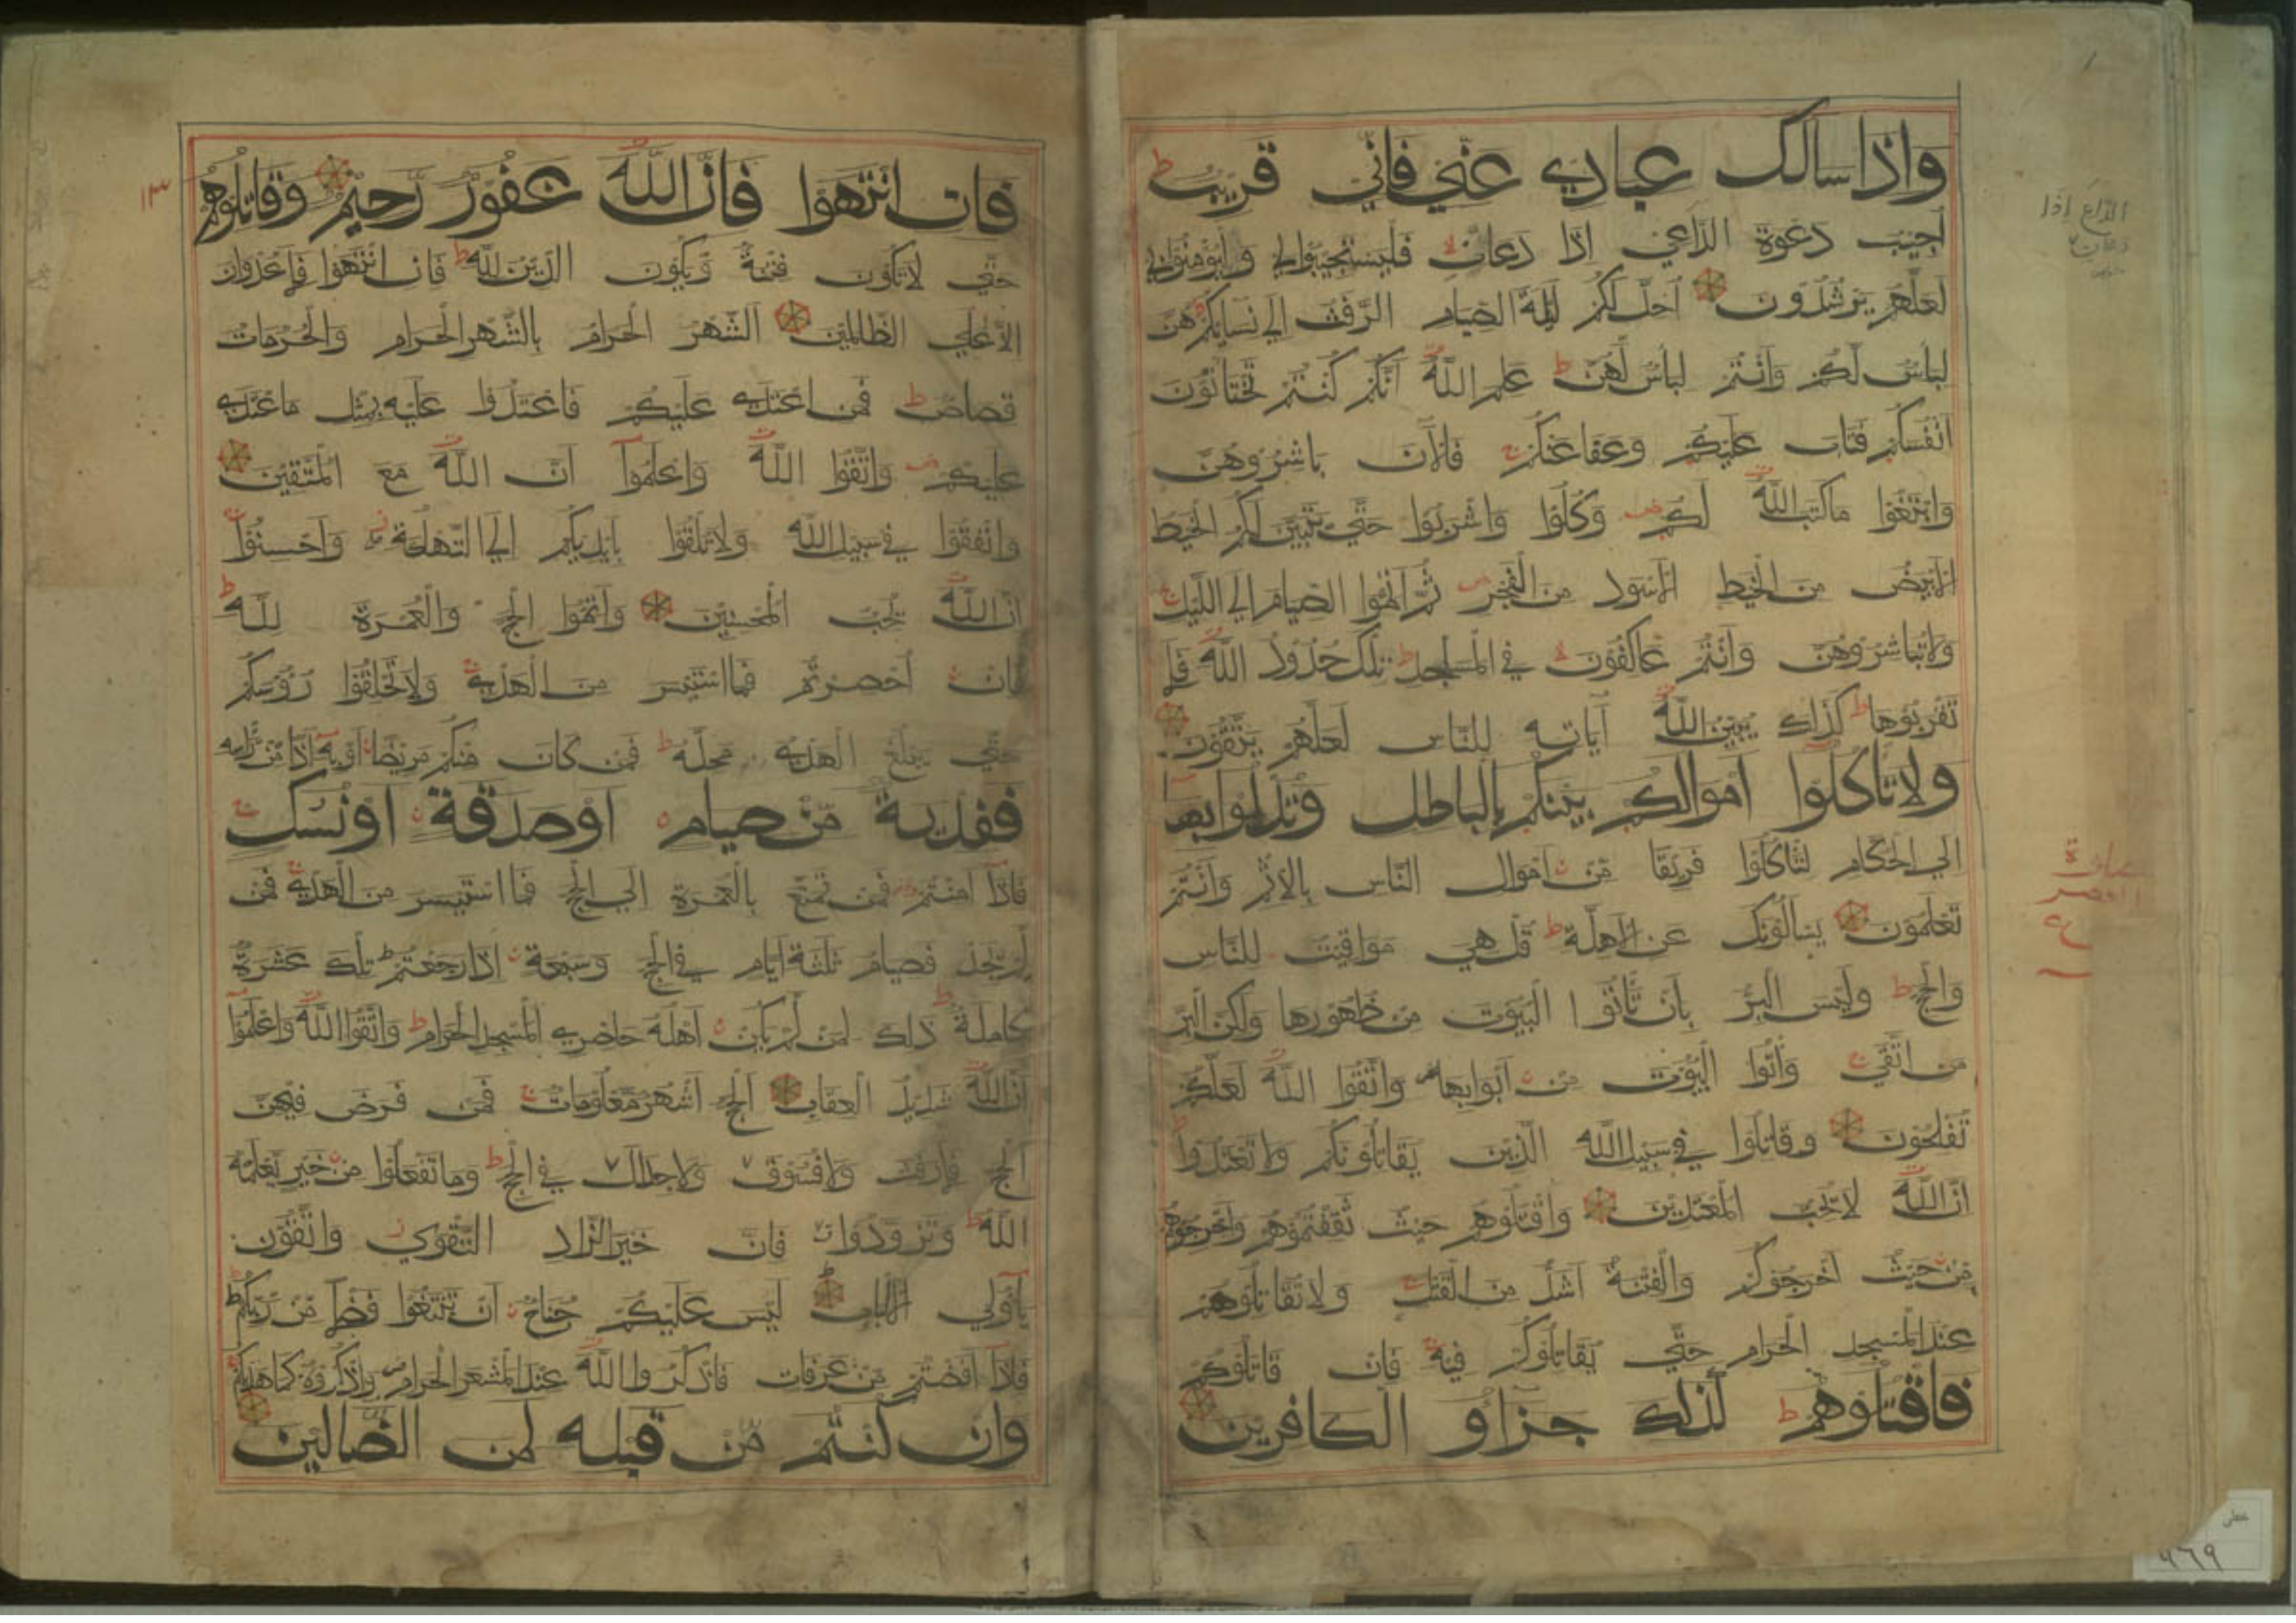 واذا سالك عبادي عني فاني قريب ط
اجيب دعوة الداعي اذا دعان لا فليستجيبوا لي وليؤمنوا بي
لعلهم يرشدون احل لكم ليلة الصيام الرفث الى نسايكم هن
لباس لكم وانتم لباس لهن ط علم الله انكم كنتم تختانون
انفسكم فتاب عليكم وعفا عنكم ج فالان باشروهن
وابتغوا ما كتب الله لكم ص وكلوا واشربوا حتى يتبين لكم الخيط
الابيض من الخيط الاسود من الفجر ص ثم اتموا الصيام الى الليل ج
ولا تباشروهن وانتم عاكفون لا في المساجد ط تلك حدود الله فلا
تقربوها ط كذلك يبين الله آياته للناس لعلهم يتقون
ولا تاكلوا اموالكم بينكم بالباطل وتدلوا بها
الى الحكام لتاكلوا فريقا من اموال الناس بالاثم وانتم
تعلمون يسالونك عن الاهلة ط قل هي مواقيت للناس
والحج ط وليس البر بان تاتوا البيوت من ظهورها ولكن البر
من اتقى ج واتوا البيوت من ابوابها ص واتقوا الله لعلكم
تفلحون وقاتلوا في سبيل الله الذين يقاتلونكم ولا تعتدوا ط
ان الله لا يحب المعتدين واقتلوهم حيث ثقفتموهم واخرجوهم
من حيث اخرجوكم والفتنة اشد من القتل ج ولا تقاتلوهم
عند المسجد الحرام حتى يقاتلوكم فيه ج فان قاتلوكم
فاقتلوهم ط كذلك جزاؤ الكافرين
الداع إذا
دعان
٩٦٩
١٣
فان انتهوا فان الله غفور رحيم وقاتلوهم
حتى لا تكون فتنة ويكون الدين لله ط فان انتهوا فلا عدوان
الا على الظالمين الشهر الحرام بالشهر الحرام والحرمات
قصاص ط فمن اعتدى عليكم فاعتدوا عليه بمثل ما اعتدى
عليكم ص واتقوا الله واعلموا ان الله مع المتقين
وانفقوا في سبيل الله ولا تلقوا بايديكم الى التهلكة واحسنوا
ان الله يحب المحسنين واتموا الحج والعمرة لله ط
فان احصرتم فما استيسر من الهدي ج ولا تحلقوا رؤسكم
حتى يبلغ الهدي محله ط فمن كان منكم مريضا او به اذا من راسه
ففدية من صيام او صدقة او نسك ج
فاذا امنتم فمن تمتع بالعمرة الى الحج فما استيسر من الهدي ج فمن
لم يجد فصيام ثلثة ايام في الحج وسبعة اذا رجعتم ط تلك عشرة
كاملة ط ذلك لمن لم يكن اهله حاضري المسجد الحرام ط واتقوا الله واعلموا
ان الله شديد العقاب الحج اشهر معلومات ج فمن فرض فيهن
الحج فلا رفث ولا فسوق ولا جدال في الحج ط وما تفعلوا من خير يعلمه
الله ط وتزودوا فان خير الزاد التقوى ز واتقون
ياولي الالباب ليس عليكم جناح ان تبتغوا فضلا من ربكم ط
فاذا افضتم من عرفات فاذكروا الله عند المشعر الحرام ص واذكروه كما هديكم ج
وان كنتم من قبله لمن الضالين